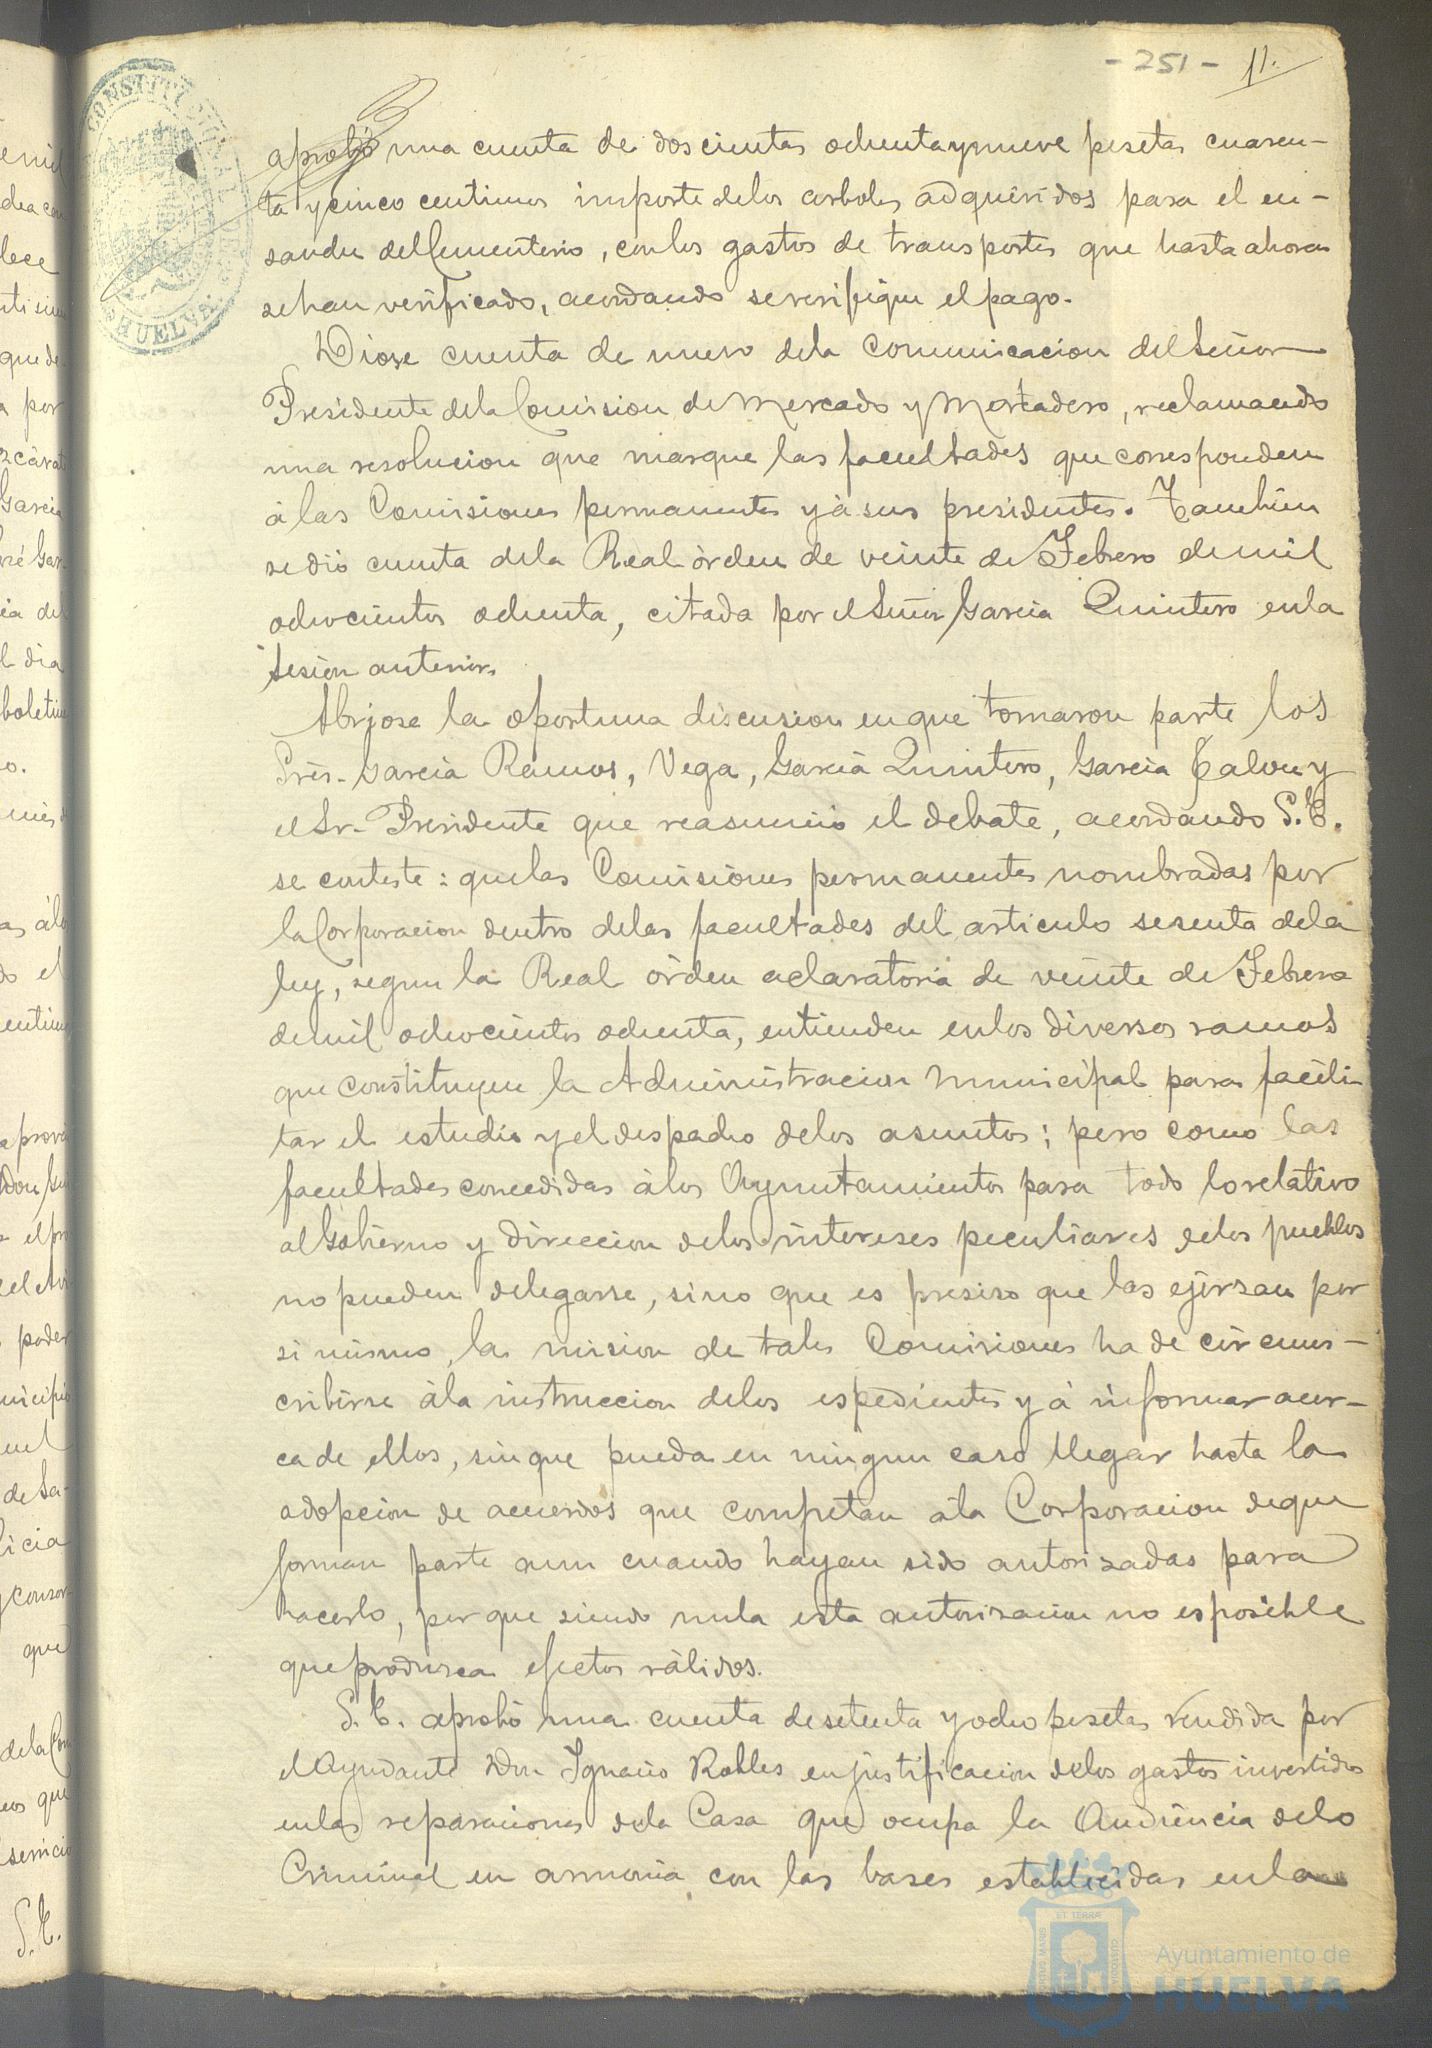 - 251 - 11.
aprobó una cuenta de doscientas ochenta y nueve pesetas cuaren-
ta y cinco centimos importe de los arboles adquiridos para el en-
sanche del Cementerio, con los gastos de transportes que hasta ahora
se han verificado, acordando se verifique el pago.
Diose cuenta de nuevo de la comunicacion del Señor
Presidente de la Comision de Mercado y Matadero, reclamando
una resolucion que marque las facultades que corresponden
á las Comisiones permanentes y á sus presidentes. Tambien
se dió cuenta de la Real órden de veinte de Febrero de mil
ochocientos ochenta, citada por el Señor Garcia Quintero en la
sesion anterior.
Abrjose la oportuna discusion en que tomaron parte los
Sres. Garcia Ramos, Vega, Garcia Quintero, Garcia Calvon y
el Sr. Presidente que reasumió el debate, acordando S.E.
se conteste: que las Comisiones permanentes nombradas por
la Corporacion dentro de las facultades del articulo sesenta de la
ley, segun la Real órden aclaratoria de veinte de Febrero
de mil ochocientos ochenta, entienden en los diversos ramos
que constituyen la Administracion municipal para facili-
tar el estudio y el despacho de los asuntos; pero como las
facultades concedidas á los Ayuntamientos para todo lo relativo
al Gobierno y direccion de los intereses peculiares de los pueblos
no pueden delegarse, sino que es presiso que las ejerzan por
si mismo, la mision de tales Comisiones ha de circuns-
cribirse á la instruccion de los espedientes y á informar acer-
ca de ellos, sin que pueda en ningun caso llegar hasta la
adopcion de acuerdos que competan á la Corporacion de que
forman parte aun cuando hayan sido autorizadas para
hacerlo, por que siendo nula esta autorizacion no es posible
que produzca efectos válidos.
S.E. aprobó una cuenta de setenta y ocho pesetas rendida por
el Ayudante Don Ignacio Robles en justificacion de los gastos invertidos
en las reparaciones de la Casa que ocupa la Audiencia de lo
Criminal en armonia con las bases establecidas en la
CONSTITUCIONAL
HUELVA
Ayuntamiento de
HUELVA